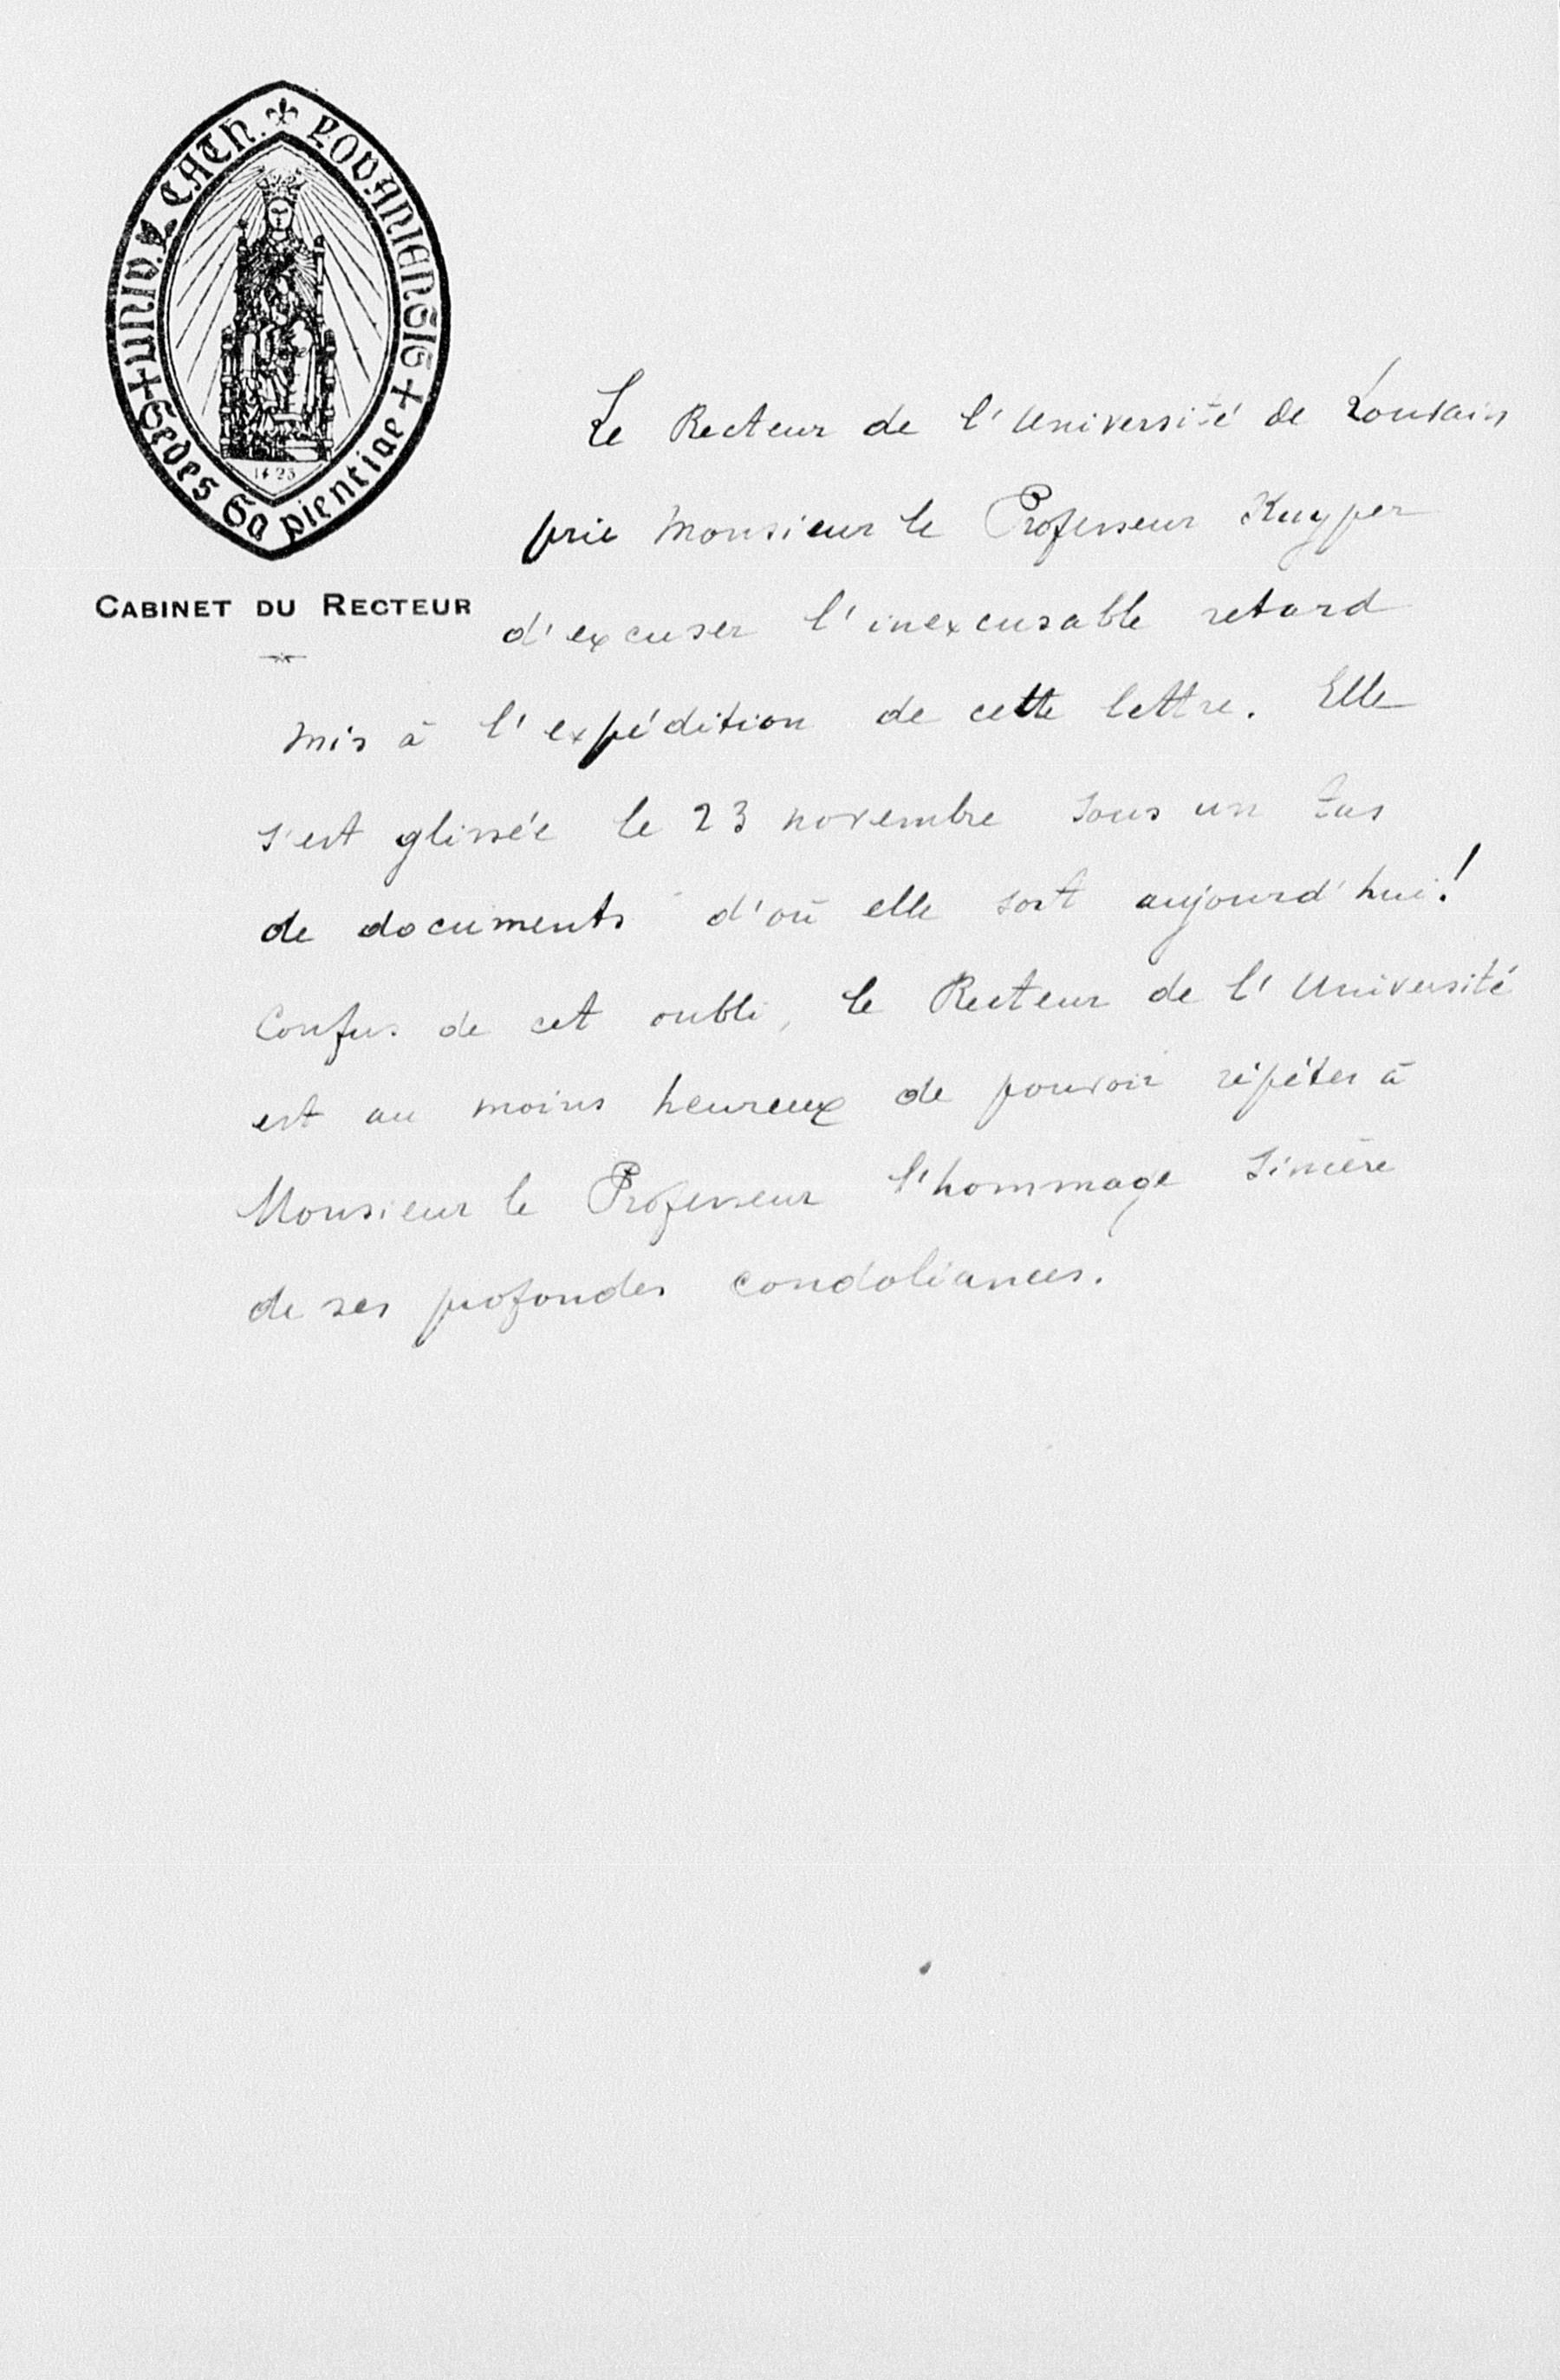 + UNIV. CATH. LOVANIENSIS +
Sedes Sapientiae
1425
CABINET DU RECTEUR
Le Recteur de l'Université de Louvain
prie Monsieur le Professeur Kuyper
d'excuser l'inexcusable retard
mis à l'expédition de cette lettre. Elle
s'est glissée le 23 novembre sous un tas
de documents d'où elle sort aujourd'hui!
Confus de cet oubli, le Recteur de l'Université
est au moins heureux de pouvoir répéter à
Monsieur le Professeur l'hommage sincère
de ses profondes condoléances.